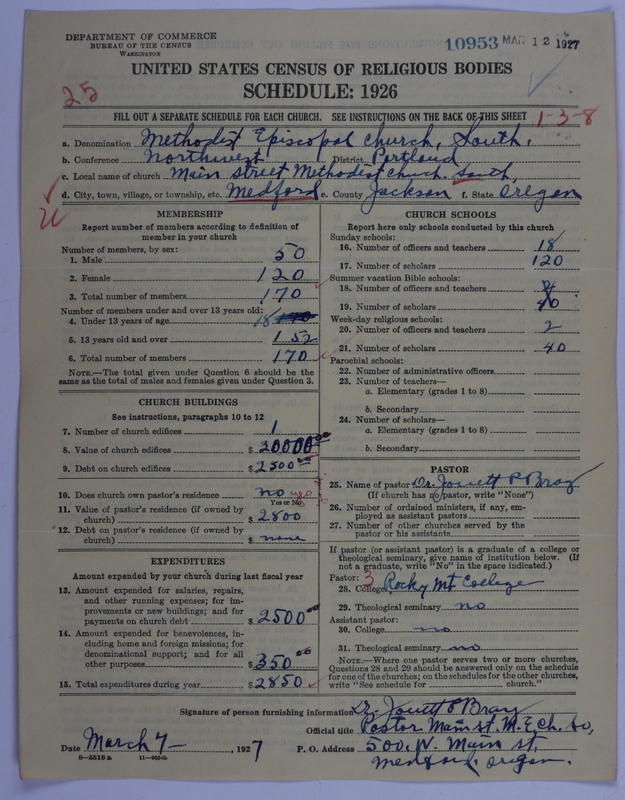 DEPARTMENT OF COMMERCE
BUREAU OF THE CENSUS
WASHINGTON
10953 MAR 12 1927
UNITED STATES CENSUS OF RELIGIOUS BODIES
SCHEDULE: 1926
25
FILL OUT A SEPARATE SCHEDULE FOR EACH CHURCH. SEE INSTRUCTIONS ON THE BACK OF THIS SHEET
1-3-8
a. Denomination Methodist Episcopal Church, South.
b. Conference Northwest District Portland
c. Local name of church Main Street Methodist Church South,
d. City, town, village, or township, etc. Medford e. County Jackson f. State Oregon
MEMBERSHIP
Report number of members according to definition of
member in your church
Number of members, by sex:
1. Male 50
2. Female 120
3. Total number of members 170
Number of members under and over 13 years old:
4. Under 13 years of age 18
5. 13 years old and over 152
6. Total number of members 170
NOTE.—The total given under Question 6 should be
same as the total of males and females given under Question 3.
CHURCH BUILDINGS
See instructions, paragraphs 10 to 12
7. Number of church edifices 1
8. Value of church edifices $ 20000 00
9. Debt on church edifices $ 2500 00
10. Does church own pastor's residence no yes
Yes or No
11. Value of pastor's residence (if owned by
church) $ 2800
12. Debt on pastor's residence (if owned by
church) $ none
EXPENDITURES
Amount expended by your church during last fiscal year
13. Amount expended for salaries, repairs,
and other running expenses; for im-
provements or new buildings; and for
payments on church debt $ 2500 00
14. Amount expended for benevolences, in-
cluding home and foreign missions; for
denominational support; and for all
other purposes $ 350 00
15. Total expenditures during year $ 2850
CHURCH SCHOOLS
Report here only schools conducted by this church
Sunday schools:
16. Number of officers and teachers 18
17. Number of scholars 120
Summer vacation Bible schools:
18. Number of officers and teachers
19. Number of scholars
Week-day religious schools:
20. Number of officers and teachers 2
21. Number of scholars 40
Parochial schools:
22. Number of administrative officers
23. Number of teachers—
a. Elementary (grades 1 to 8)
b. Secondary
24. Number of scholars—
a. Elementary (grades 1 to 8)
b. Secondary
PASTOR
25. Name of pastor Dr. Jouett P Bray
(If church has no pastor, write "None")
26. Number of ordained ministers, if any, em-
ployed as assistant pastors
27. Number of other churches served by the
pastor or his assistants
If pastor (or assistant pastor) is a graduate of a college or
theological seminary, give name of institution below. (If
not a graduate, write "No" in the space indicated.)
Pastor: 3
28. College Rocky Mt. College
29. Theological seminary no
Assistant pastor:
30. College no
31. Theological seminary no
NOTE.—Where one pastor serves two or more churches,
Questions 28 and 29 should be answered only on the schedule
for one of the churches; on the schedules for the other churches,
write "See schedule for church."
Signature of person furnishing information Dr. Jouett P Bray
Official title Pastor Main st. M. E Ch. So,
Date March 7 , 1927 P. O. Address 500. W. Main st,
8—5518 a
Medford. Oregon.